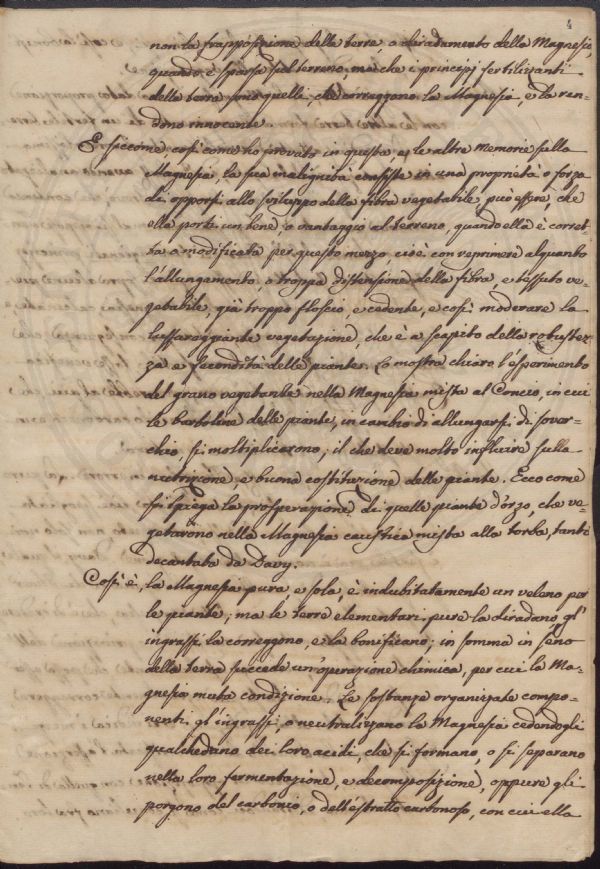 4
non la frapposizione della terre, o diradamento della Magnesia,
quando è sparsa sul terreno, ma che i principj fertilizzanti
della terra sono quelli, che correggono la Magnesia, e la ren-
dono innocente.
E siccome, così come ho provato in questa, e le altre Memorie sulla
Magnesia, la sua malignità consiste in una proprietà o forza
di opporsi allo sviluppo della fibra vegetabile, può essere, che
ella porti un bene, o vantaggio al terreno, quando ella è corret-
ta o modificata per questo mezzo, cioè con reprimere alquanto
l'allungamento, o troppa distensione della fibra, e tessuto ve-
getabile, già troppo floscio, e cadente, e così moderare la
lussureggiante vegetazione, che è a scapito della robustez-
za e fecondità delle piante. Lo mostra chiaro l'esperimento
del grano vegetante nella Magnesia mista al Concio, in cui
le barboline delle piante, in cambio di allungarsi di sover-
chio, si moltiplicarono; il che deve molto influire sulla
nutrizione, e buona costituzione delle piante. Ecco come
si spiega la prosperazione di quelle piante d'orzo, che ve-
getarono nella Magnesia caustica mista alla torba, tanto
decantata da Davy.
Così è, la Magnesia pura, e sola, è indubitatamente un veleno per
le piante; ma le terre elementari pure la diradano, gl'
ingrassi la correggono, e la bonificano; in somma in seno
della terra succede un'operazione chimica, per cui la Ma-
gnesia muta condizione. Le sostanze organizzate compo-
nenti gl'ingrassi, o neutralizzano la Magnesia cedendogli
qualcheduno dei loro acidi, che si formano, o si separano
nella loro fermentazione, e decomposizione, oppure gli
porgono del carbonio, o dell'estratto carbonoso, con cui ella